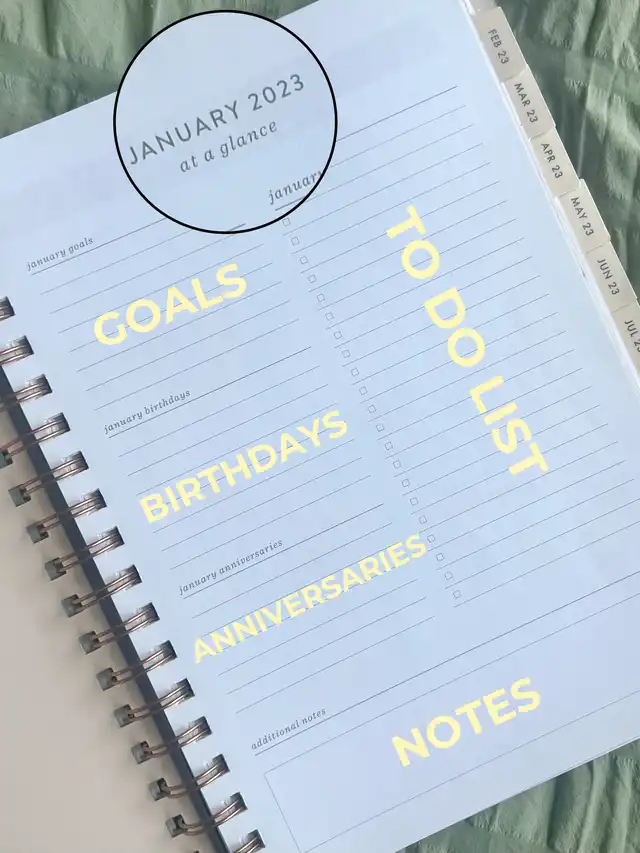 JANUARY 2023
at a glance
january
january goals
GOALS
january birthdays
BIRTHDAYS
january anniversaries
ANNIVERSARIES
TO DO LIST
additional notes
NOTES
FEB 23
MAR 23
APR 23
MAY 23
JUN 23
JUL 2